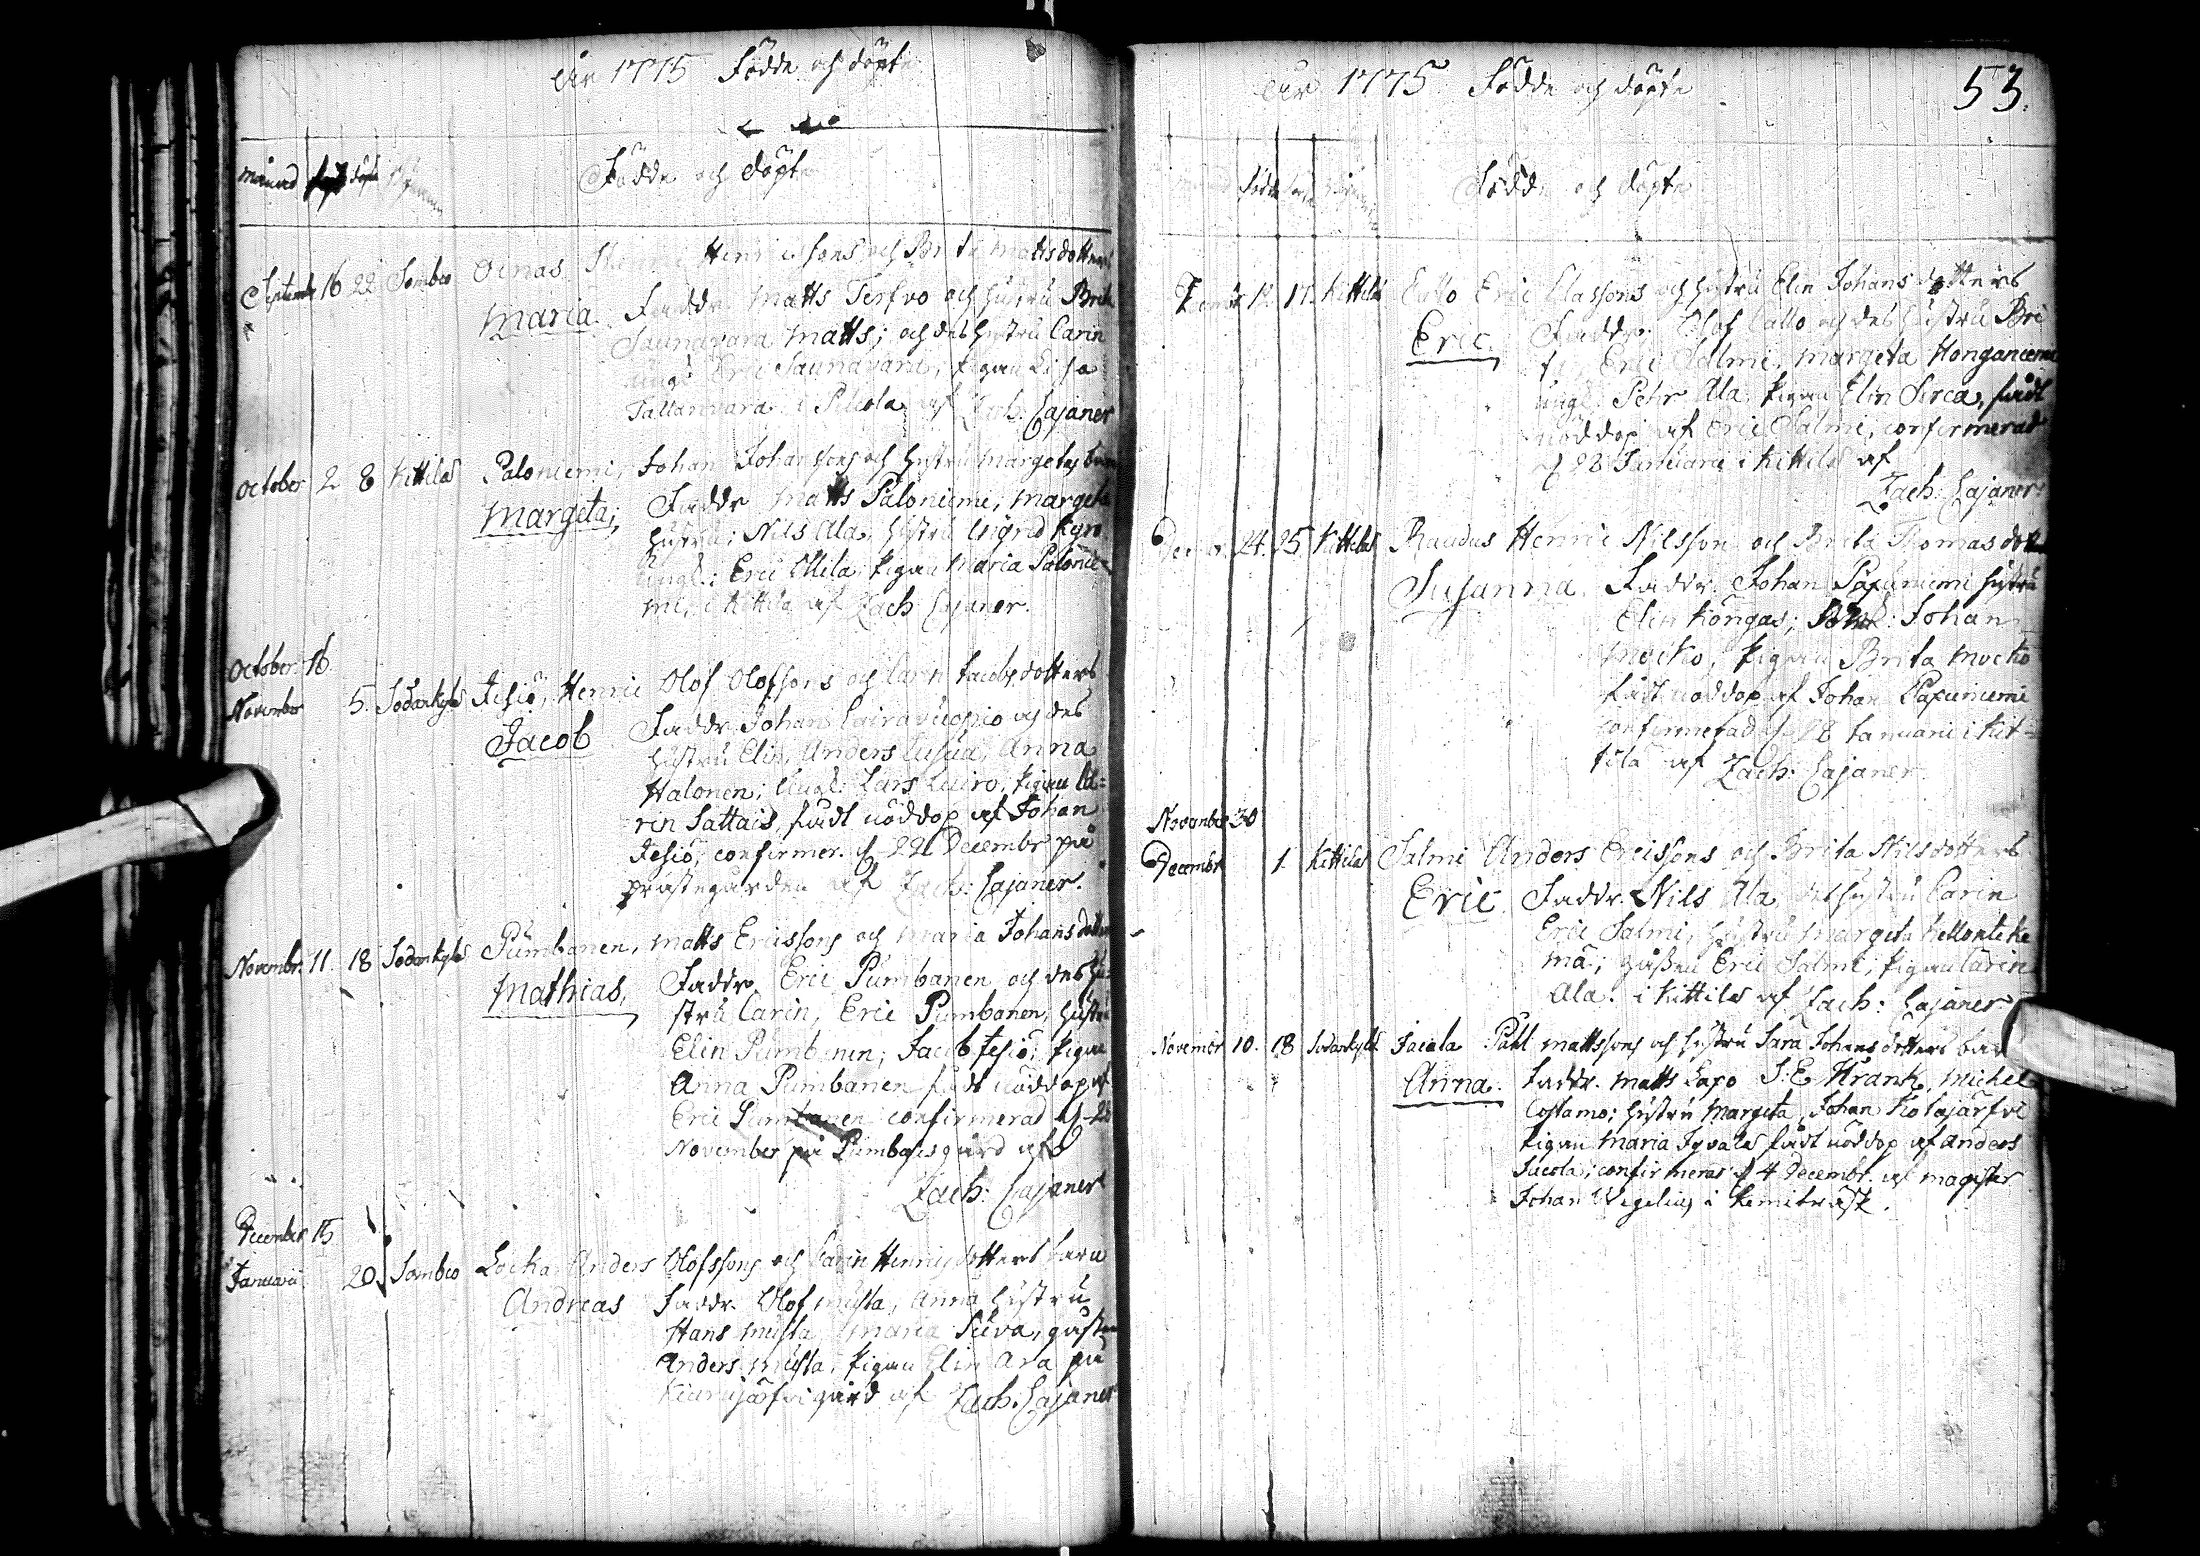 år 1775 Födde och döpte
månad född döpt
Födde och döpte
Septembr 16 22 Sombio Oinas Henric Henricssons och Brita Mattsdotters
Maria. Faddr. Matts Terfvo och hustru Brita
Saunavara Matts; och des hustru Carin
ungk: Eric Saunavara, pigan
Tallanvara i Pelcola af Zach: Cajaner
October 2 8 Kittilä Paloniemi, Johan Johanssons och hustru Margetas barn
Margeta; Faddr Matts Paloniemi, Margeta
hustru; Nils Ala, hustru Sigrid Kyrö
ungk: Eric Ollila, pigan Maria Palonie-
mi, i Kittilä af Zach Cajaner.
October 16
November 5. Sodankylä Jesiö, Henric Olof Olofsons och Carin Jacobsdotters
Jacob Faddr. Johan Cairavuopio och des
hustru Elin, Anders Lusua, Anna
Halonen; Ungk: Lars Luiro, pigan Ca=
rin Sattais, fådt nöddop af Johan
Jesiö; confirmer. d 22 Decembr på
prästegården af Zach: Cajaner.
Novembr. 11 18 Sodankylä Pumbanen, Matts Ericssons och Maria Johansdotters
Mathias, Faddr. Eric Pumbanen och des hu-
stru Carin, Eric Pumbanen, hustru
Elin Pumbanen; Jacob Jesiö; pigan
Anna Pumbanen fådt nöddop af
Eric Pumbanen confirmerad d 25
November på Pumbasgård af
Zach: Cajaner
December 15
Januarii 20 Sombio Locka Anders Olofssons och Carin Henricsdotters barn
Andreas Faddr. Olof Musta, Anna hustru
Hans Musta, Maria Siiva, gossen
Anders Musta, pigan Elin Ara på
Kiurujärfvi gård af Zach: Cajaner
år 1775 Födde och döpte 53.
Födde och döpte
17. Kittilä Callo Eric Classons och hustru Elin Johansdotters
Eric. Faddr. Olof Callo och des hustru Bri
ta, Eric Salmi, Margeta Honganiemi
ungk: Pehr Ala, pigan Elin Sirca, fådt
nöddop af Eric Salmi, confirmerad
d 28 Januarii i Kittilä af
Zach: Cajaner.
24. 25 Kittilä Raudus Henric Nilsson och Brita Thomasdotters
Susanna. Faddr. Johan Papuniemi hustru
Elin Köngas; Johan
Mocko, pigan Brita Mocko
fådt nöddop af Johan Papuniemi
confirmerad d 28 Januarii i Kit=
tilä af Zach: Cajaner.
November 30
Decembr 1. Kittilä Salmi Anders Ericssons och Brita Nilsdotters
Eric Faddr. Nils Ala, des hustru Carin
Eric Salmi, hustru Margeta Kellonteke
mä; gossen Eric Salmi, pigan Carin
Ala. i Kittilä af Zach: Cajaner
Novembr 10. 18 Sodankylä Jacola Påhl Mattssons och hustru Sara Johansdotters barn
Anna. Faddr. Matts Lapo S: E Kranck, Michel
Costamo; hustru Margeta, Johan Kotajärfvi
pigan Maria Jyvälä fådt nöddop af Anders
Jucola; confirmerad d 4 Decembr. af magister
Johan Wegelius i Kemiträsk.